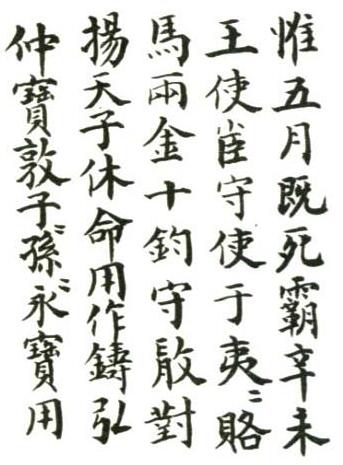 惟五月既死霸辛未
王使小臣守使于夷〻賂
馬兩金十鈞守敢對
揚天子休命用作鑄引
仲寶敦子〻孫〻永寶用